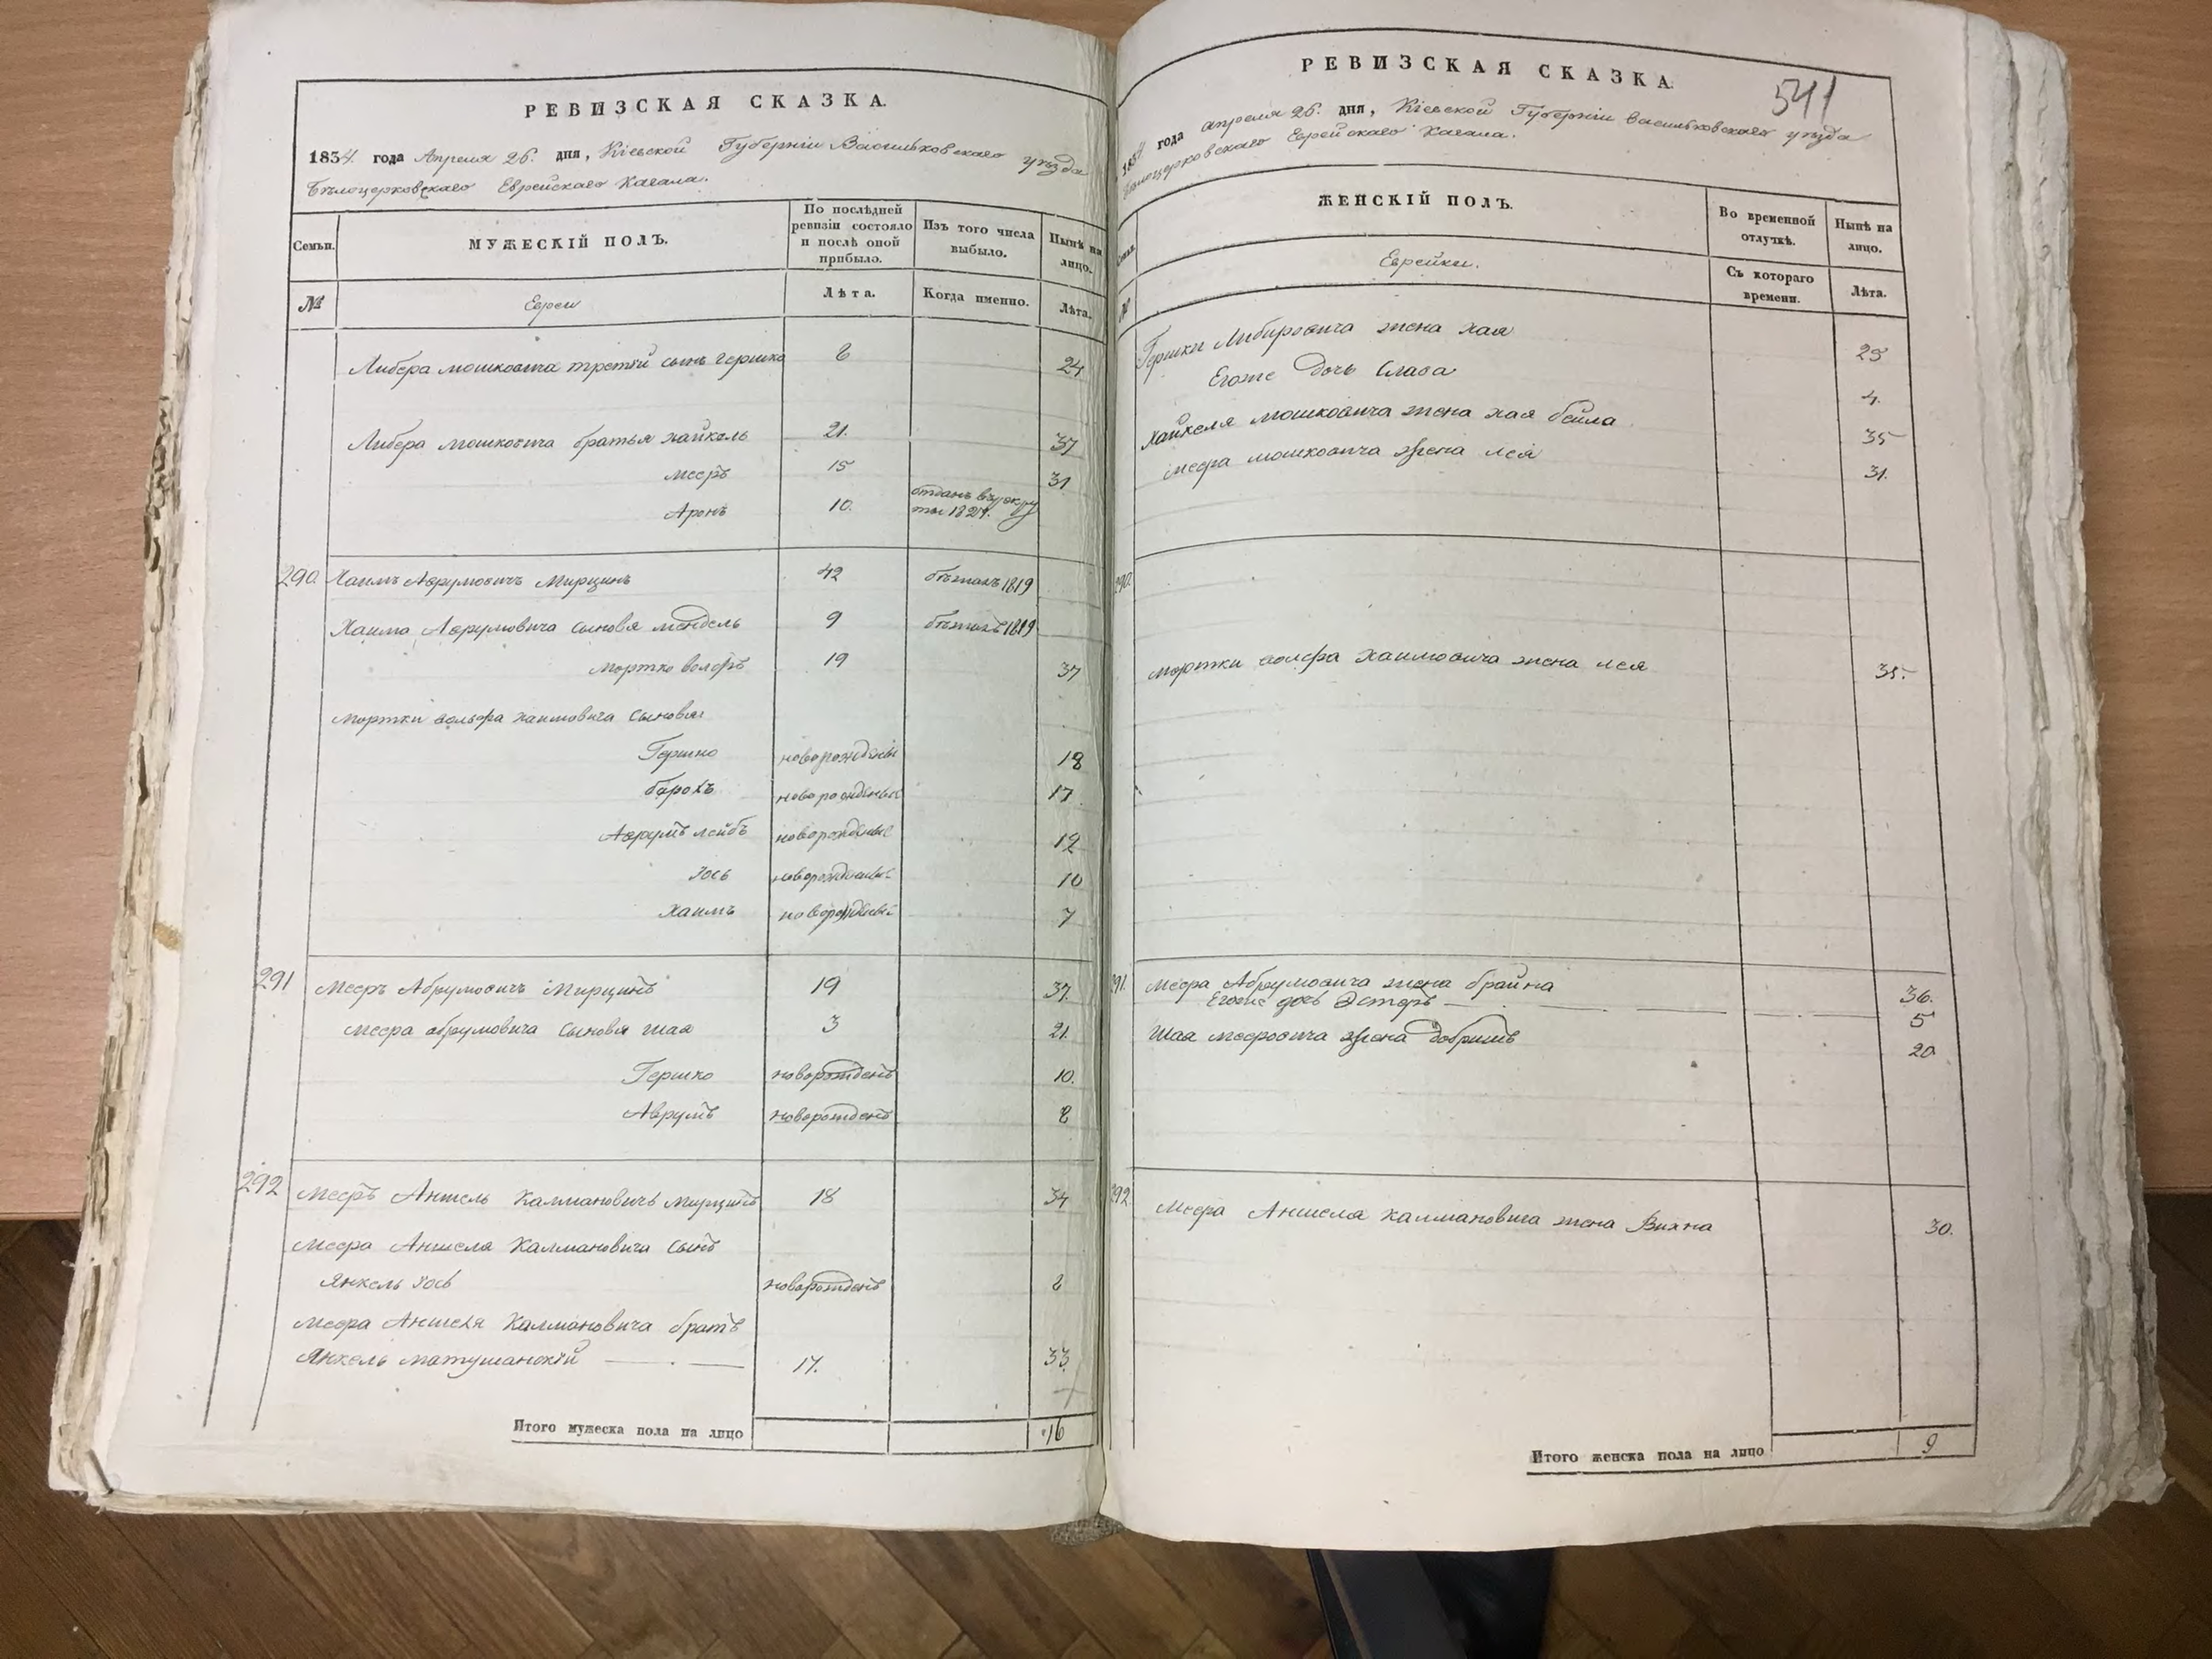 РЕВИЗСКАЯ СКАЗКА.
1834. года Апреля 26. дня, Кіевской Губерніи Васильковскаго уѣзда
Бѣлоцерковскаго Еврейскаго Кагала.
Семьи.
МУЖЕСКІЙ ПОЛЪ.
По послѣдней ревизіи состояло и послѣ оной прибыло.
Изъ того числа выбыло.
Нынѣ на лицо.
№
Евреи
Лѣта.
Когда именно.
Лѣта.
Либера мошковича третій сынъ Гершко 8 24
Либера мошковича братья хайкель 21. 37
мееръ 15 31
Аронъ 10. отданъ въ рекру
ты 1827.
290. Хаимъ Аврумовичъ Мирцинъ 42 бѣжалъ 1819
Хаима Аврумовича сыновя мендель 9 бѣжалъ 1819
мортко волфъ 19 37
мортки вольфа хаимовича сыновя
Гершко новорожденый 18
борохъ новорожденый 17.
Аврумъ лейбъ новорожденый 12
Іось новорожденый 10
Хаимъ новорожденый 7
291 Мееръ Абрумовичъ Мирцинъ 19 37.
Меера абрумовича сыновя шая 3 21.
Гершко новорожденъ 10.
Аврумъ новорожденъ 8
292 Мееръ Аншель Калмановичъ Мирцинъ 18 34
Меера Аншеля Калмановича сынъ
Янкель Іось новорожденъ 2
Меера Аншеля Калмановича братъ
Янкель матушанскій 17. 33.
Итого мужеска пола на лицо 16
РЕВИЗСКАЯ СКАЗКА.
541
1834. года апреля 26. дня, Кіевской Губерніи Васильковскаго уѣзда
Бѣлоцерковскаго Еврейскаго Кагала.
Семьи.
ЖЕНСКІЙ ПОЛЪ.
Во временной отлучкѣ.
Нынѣ на лицо.
№
Еврейки.
Съ котораго времени.
Лѣта.
Гершки Либировича жена хая 25
Егоже дочь Слава 4.
хайкеля мошковича жена хая бейла 35
меера мошковича жена лея 31.
290.
мортки волфа Хаимовича жена лея 35.
291. Меера Абрумовича жена брайна 36.
Егоже дочь Эстеръ 5
Шая мееровича жена добришъ 20
292. Меера Аншеля Калмановича жена Вихна 30.
Итого женска пола на лицо 9